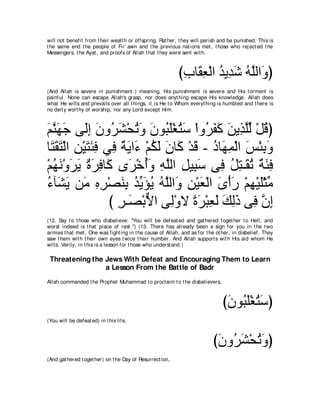 will not benefit from their wealth or offspring. Rather, they will perish and be punished. This is
the same end the people of Fir`awn and the previous nations met, those who rejected the
Messengers, the Ayat, and proofs of Allah that they were sent with.
(وَاللَّهُ شَدِيدُ الْعِقَابِ)
(And Allah is severe in punishment.) meaning, His punishment is severe and His torment is
painful. None can escape Allah's grasp, nor does anything escape His knowledge. Allah does
what He wills and prevails over all things, it is He to Whom everything is humbled and there is
no deity worthy of worship, nor any Lord except Him.
(قُلْ لِّلَّذِينَ كَفَرُواْ سَتُغْلَبُونَ وَتُحْشَرُونَ إِلَى جَهَنَّمَ
وَبِئْسَ الْمِهَادُ - قَدْ كَانَ لَكُمْ ءَايَةٌ فِي فِئَتَيْنِ الْتَقَتَا
فِئَةٌ تُقَـتِلُ فِى سَبِيلِ اللَّهِ وَأُخْرَى كَافِرَةٌ يَرَوْنَهُمْ
مِّثْلَيْهِمْ رَأْىَ الْعَيْنِ وَاللَّهُ يُؤَيِّدُ بِنَصْرِهِ مَن يَشَآءُ
إِنَّ فِى ذَلِكَ لَعِبْرَةً لاٌّوْلِى الاٌّبْصَـرِ )
(12. Say to those who disbelieve: "You will be defeated and gathered together to Hell, and
worst indeed is that place of rest.'') (13. There has already been a sign for you in the two
armies that met. One was fighting in the cause of Allah, and as for the other, in disbelief. They
saw them with their own eyes twice their number. And Allah supports with His aid whom He
wills. Verily, in this is a lesson for those who understand.)
Threatening the Jews With Defeat and Encouraging Them to Learn
a Lesson From the Battle of Badr
Allah commanded the Prophet Muhammad to proclaim to the disbelievers,
(سَتُغْلَبُونَ)
(You will be defeated) in this life,
(وَتُحْشَرُونَ)
(And gathered together) on the Day of Resurrection,